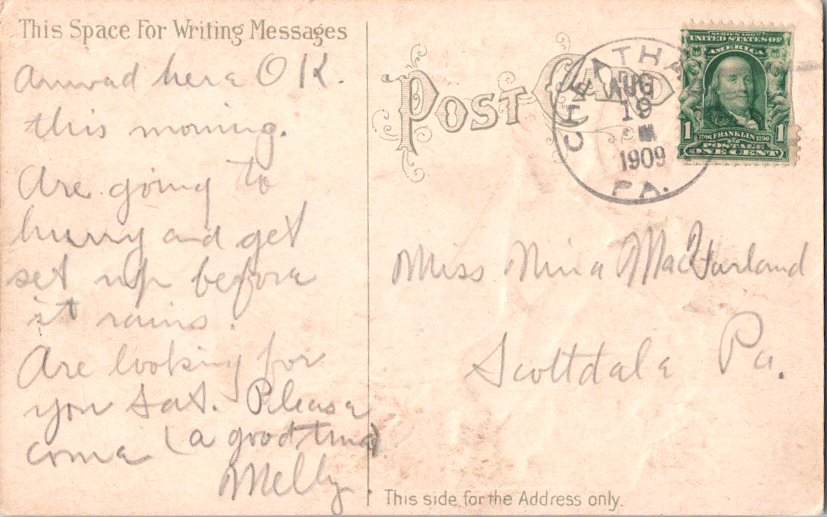 This Space For Writing Messages
Arrived here OK.
this morning.
Are going to
hurry and get
set up before
it rains.
Are looking for
you Sat. Please
come (a good time)
Melly.
POST CARD
CHEATHA
AUG
19
1909
PA.
SERIES 1902
UNITED STATES OF
AMERICA
1 FRANKLIN 1
POSTAGE
ONE CENT
Miss Nina MacFarland
Scottdale Pa.
This side for the Address only.